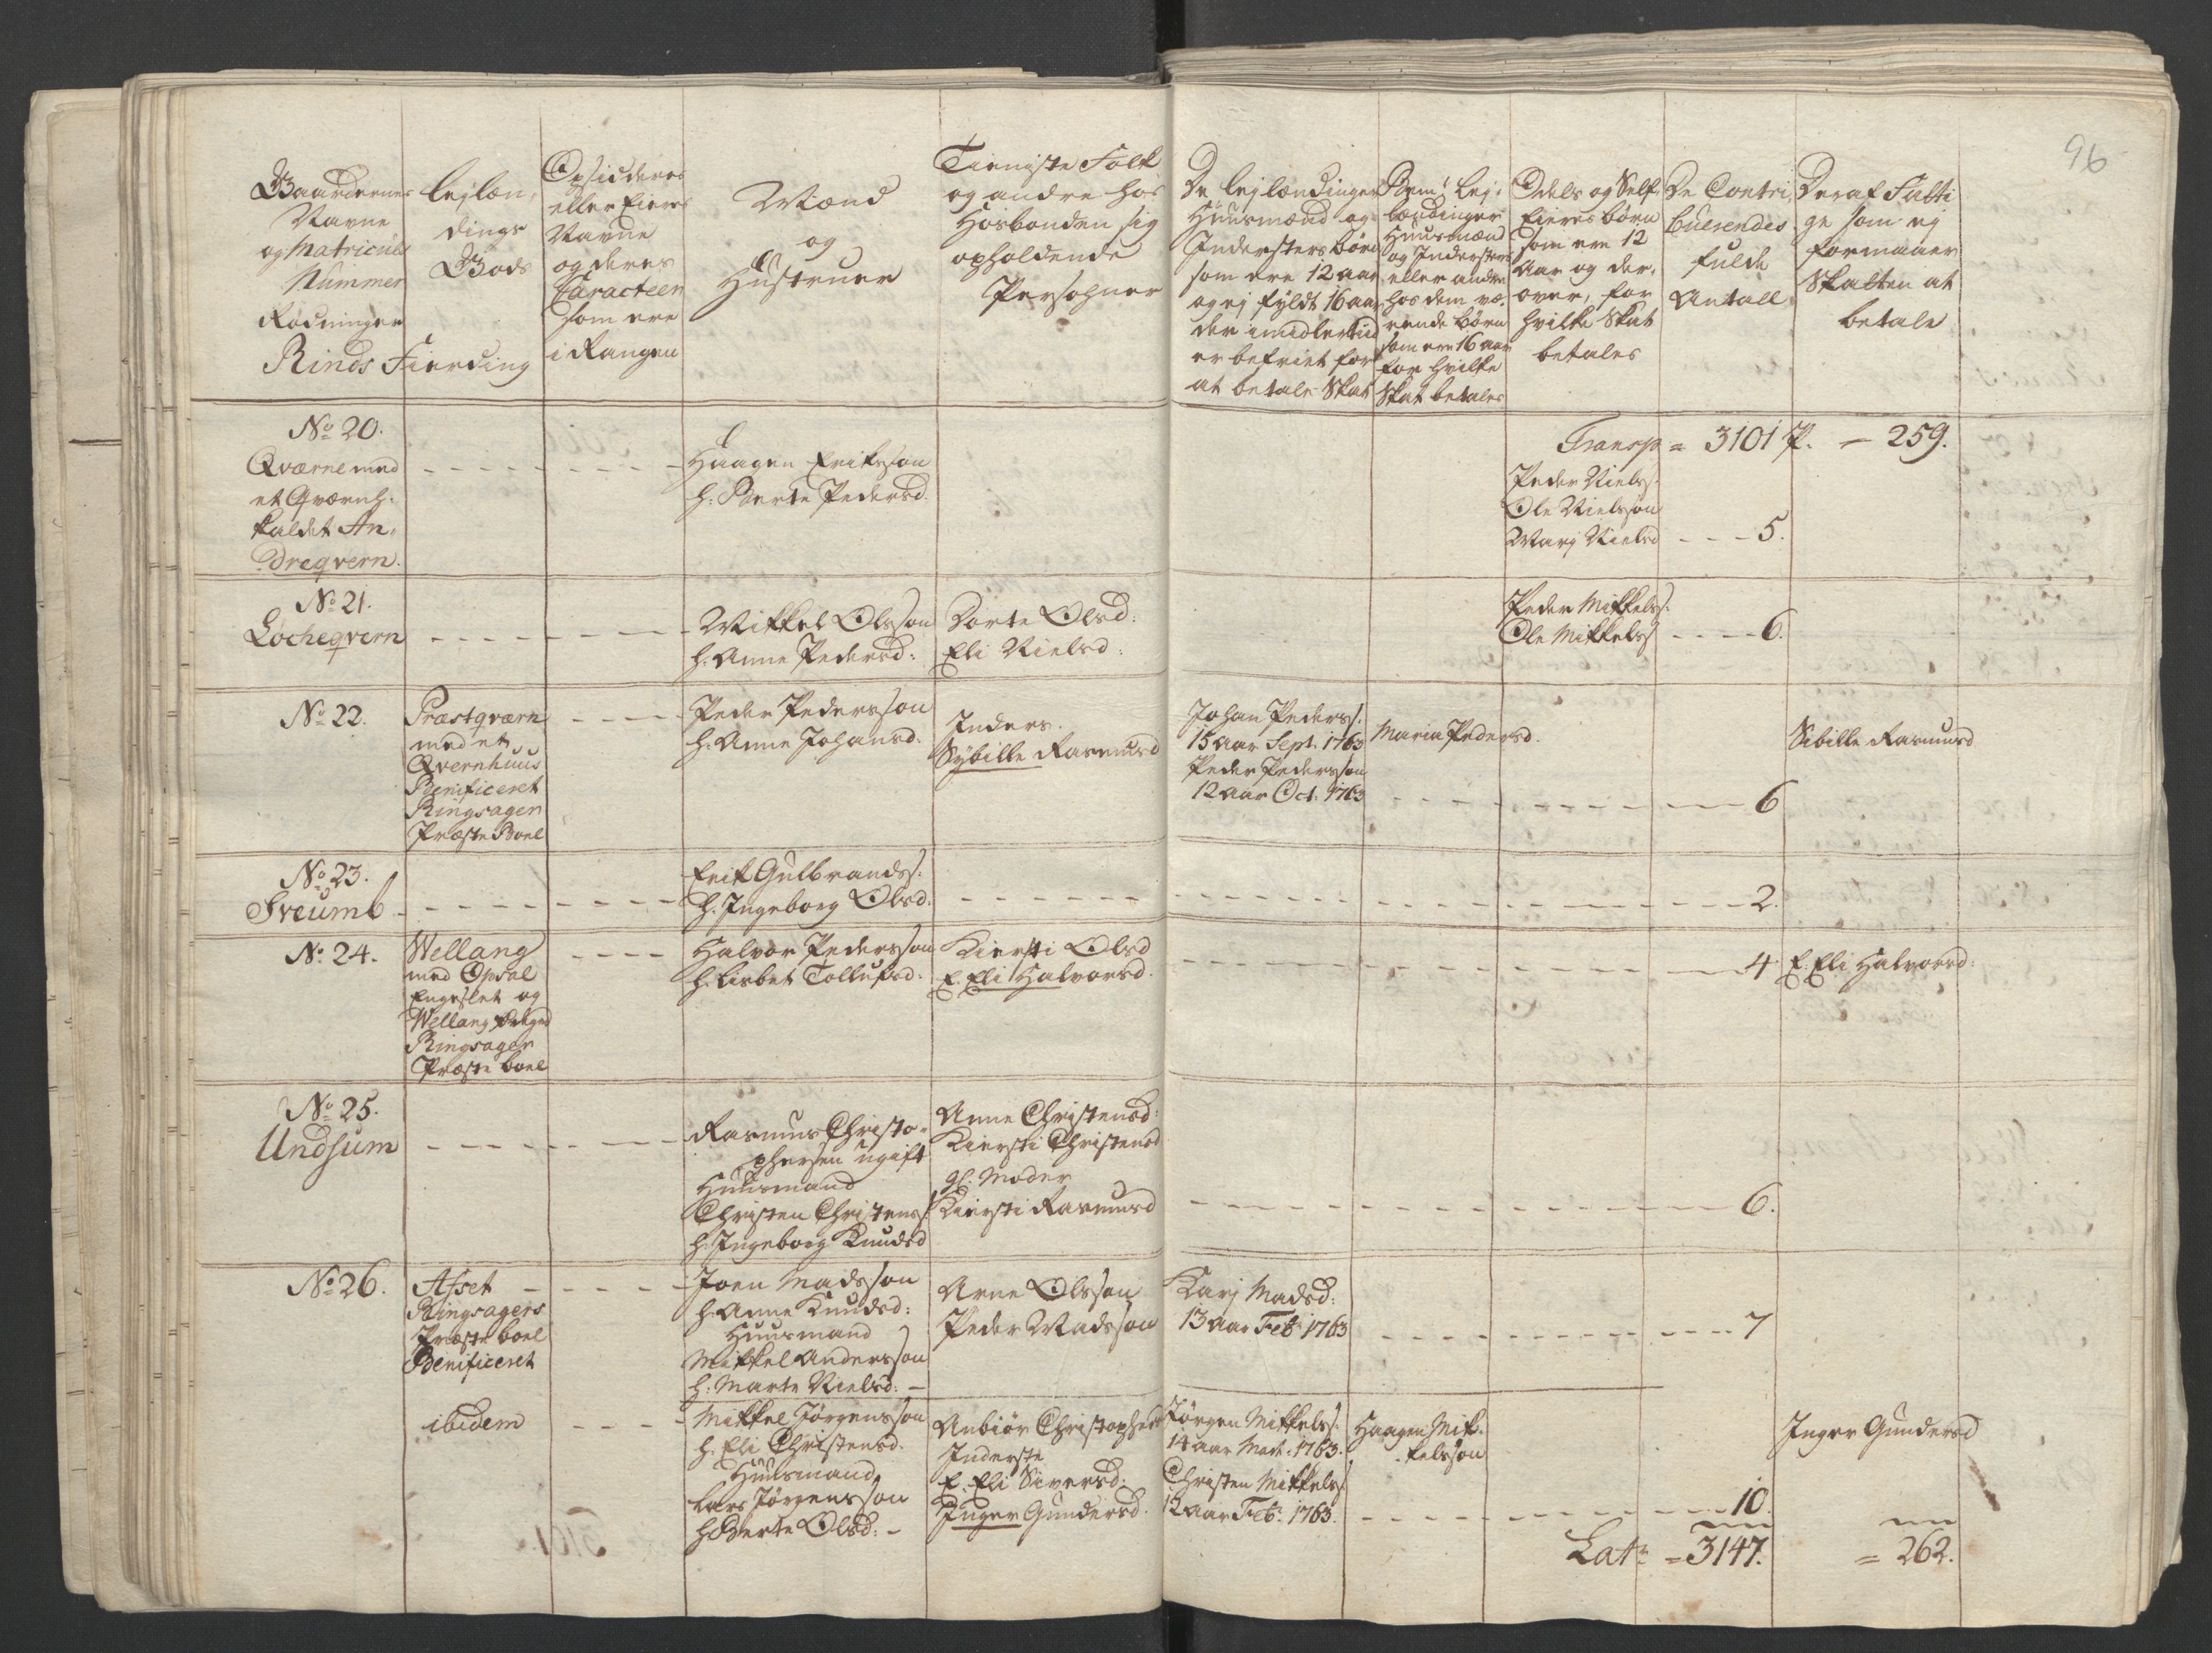 96
Gaardernes
Navne
og Matricul
Nummer
Rodninger
Rinds Fierding
Lejlæn,
dings
Gods
Opsidderes
eller Eieres
Navne
og deres
Caracteer
som ere
i Rangen
Mænd
og
Hustruer
Tieniste Folk
og andre hos
Hosbonden sig
opholdende
Persohner
De lejlændinger
Huusmænd og
Inderster børn
som ere 12 aar
og ej fyldt 16 aar
der imidlertid
er befriet for
at betale Skat
Bem: Lej,
lændinger
Huusmænd
og Inderster
eller andre
hos dem væ,
rende børn
som ere 16 aar
for hvilke
Skat betales
Odels og Self
Eieres børn
som ere 12
Aar og der,
over, for
hvilke Skat
betales
De Contri,
buerendes
fulde
Antall
Deraf Fatti
ge som ej
formaaer
Skatten at
betale
Transp = 3101 P. - 259.
No 20.
Qværne med
et Qværnh:
kaldet An,
dreqvern.
Haagen Erikssøn
h: Berte Pedersd.
Peder Nielss.
Ole Nielssøn
Marj Nielsd - - - 5.
No 21.
Løcheqvern
Mikkel Olssøn
h: Anne Pedersd:
Dorte Olsd:
Eli Nielsd:
Peder Mikkelss.
Ole Mikkelss - - - - 6.
No 22.
Præstqværn
med et
Qvernhuus
Benificeret
Ringsager
Præste Boel
Peder Pederssøn
h: Anne Johansd.
Inders.
Sÿbille Rasmusd
Johan Pederss.
15 Aar Sept. 1763
Peder Pederssøn
12 Aar Oct. 1763
Maria Pedersd.
6
Sibille Rasmusd
No 23.
Sveumb
Erik Gulbrandss.
h. Ingeborg Olsd.
2.
No 24.
Wellang
med Opsal
Engeslet og
Wellang
Ringsager
Præste boel
Halvor Pederssøn
h. Lisbet Tollufsd:
Kiersti Olsd
E. Eli Halvorsd.
4
E. Eli Halvorsd:
No 25.
Undsum
Rasmus Christo-
phersen ugift
Huusmand
Christen Christenss.
h. Ingeborg Knudsd
Anne Christensd:
Kiersti Christensd
gl. Moder
Kiersti Rasmusd
6.
No 26.
Afset
Ringsagers
Præste boel
Benificeret
Joen Madssøn
h. Anne Knudsd:
Huusmand
Mikkel Anderssøn
h: Marte Nielsd: -
Arne Olssøn
Peder Madssøn
Karj Madsd:
13 Aar Feb: 1763
7
ibidem
Mikkel Jørgenssøn
h. Eli Christensd.
Huusmand
Lars Jørgenssøn
h Berte Olsd: -
Anbiør Christophersd
Inderste
E. Eli Siversd:
Inger Gundersd.
Jørgen Mikkelss.
14 aar Mart. 1763.
Christen Mikkelss.
12 Aar Feb: 1763.
Haagen Mik-
kelssøn
10.
Inger Gundersd
Lat: = 3147. = 262.